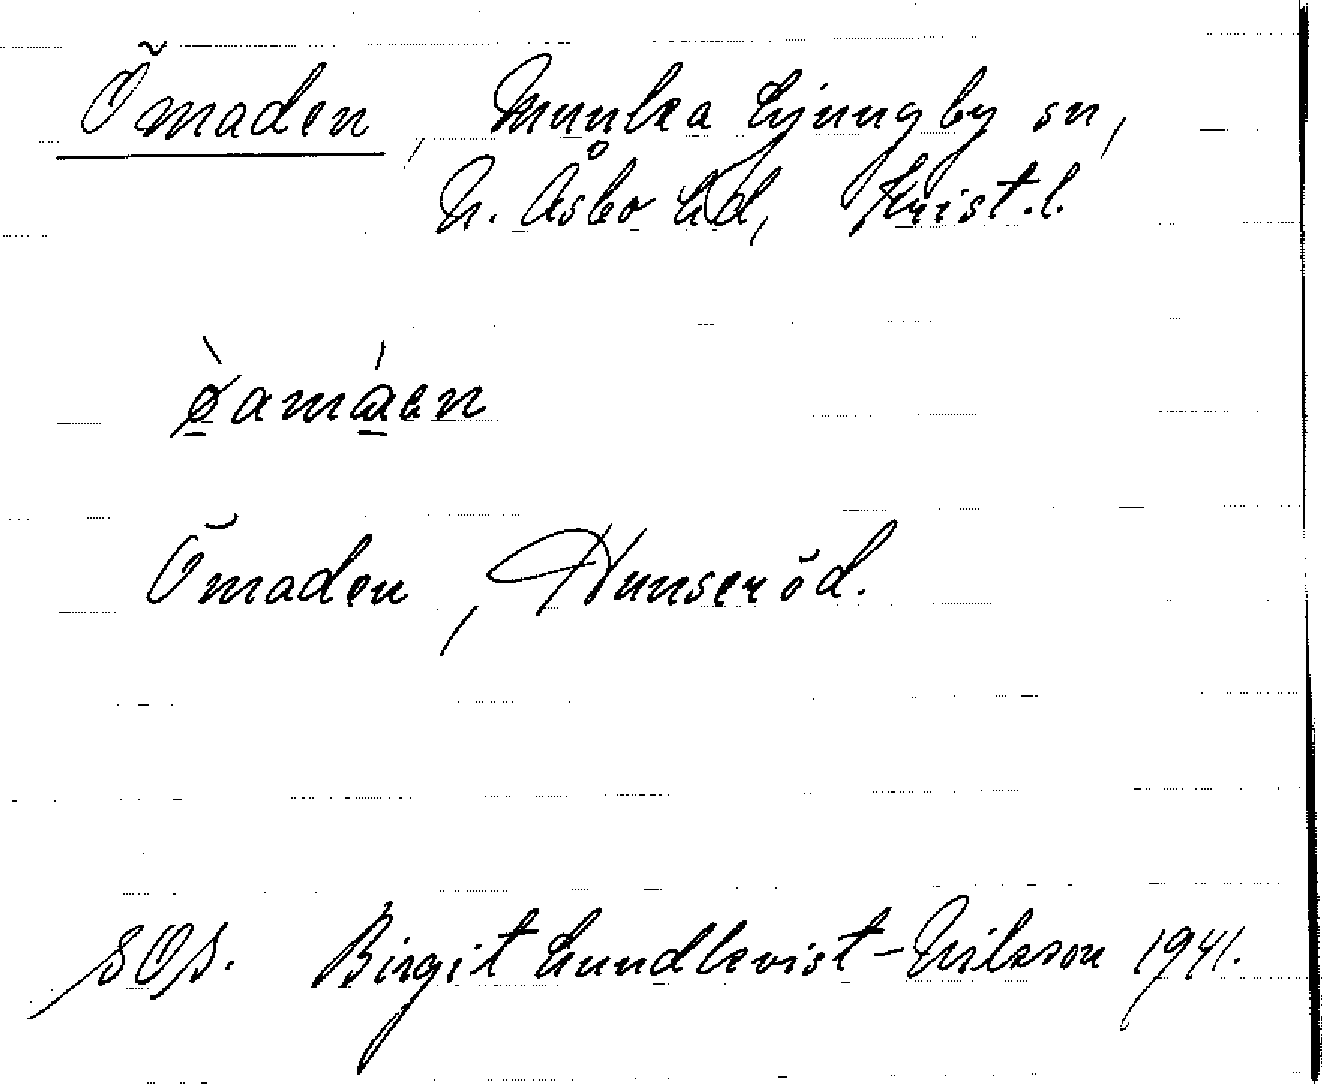 Ömaden, Munka Ljungby sn,
N. Åsbo hd, Krist. l.
ø̀amáen
Ömaden, Hunseröd.
SOS. Birgit Lundkvist-Nilsson 1941.